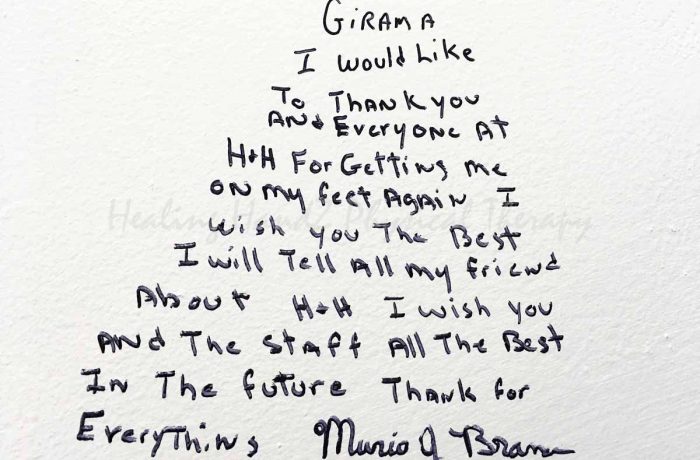 GiRAMA
I would Like
To Thank you
And Everyone At
H+H For Getting me
on my feet Again I
Healing Handz Physical Therapy
wish you The Best
I will Tell All my friend
About H+H I wish you
And The Staff All The Best
In The future Thank for
EveryThing Murio A Bran